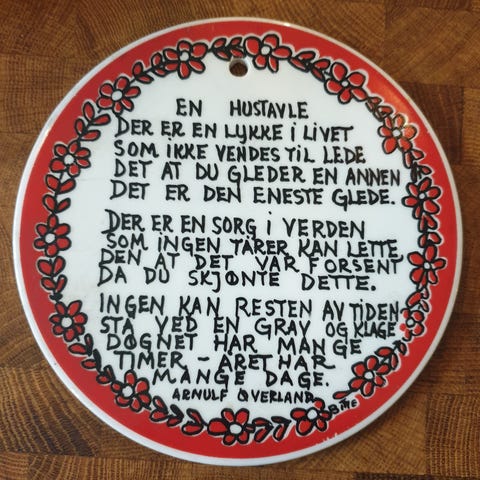 EN HUSTAVLE
DER ER EN LYKKE I LIVET
SOM IKKE VENDES TIL LEDE
DET AT DU GLEDER EN ANNEN
DET ER DEN ENESTE GLEDE.
DER ER EN SORG I VERDEN
SOM INGEN TÅRER KAN LETTE
DEN AT DET VAR FORSENT
DA DU SKJØNTE DETTE.
INGEN KAN RESTEN AV TIDEN
STÅ VED EN GRAV OG KLAGE
DØGNET HAR MANGE
TIMER - ÅRET HAR
MANGE DAGE.
ARNULF ØVERLAND